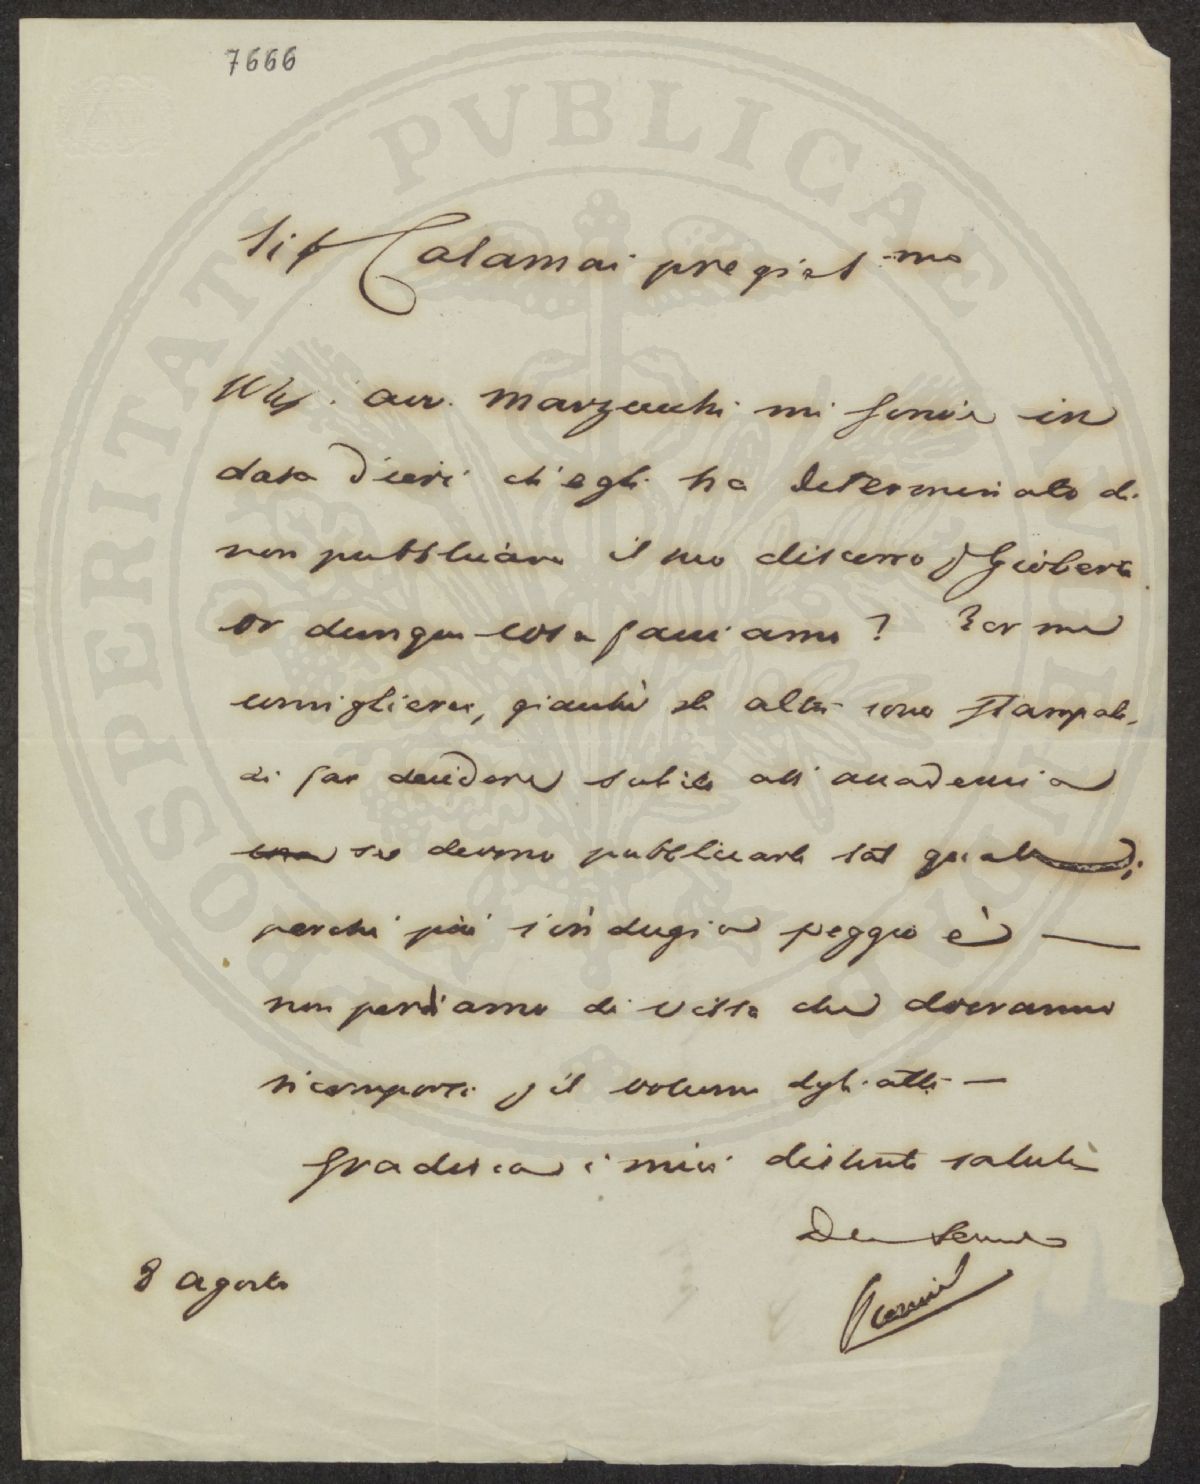 7666
Sig Calamai pregiat.mo
av. Marzucchi mi scrive in
data d'ieri ch'egli ha determinato di
non pubblicare il suo discorso p Gioberti
or dunque cosa facciamo? Per me
consiglierei, giacchè gli altri sono stampati,
di far decidere subito all'accademia
se devono pubblicarsi tal quali;
perchè più s'indugia peggio è —
non perdiamo di vista che dovranno
ricomporsi p il volume degli atti —
Gradisca i miei distinti saluti
Dev Servo
8 agosto
PROSPERITATI PVBLICAE AVGENDAE